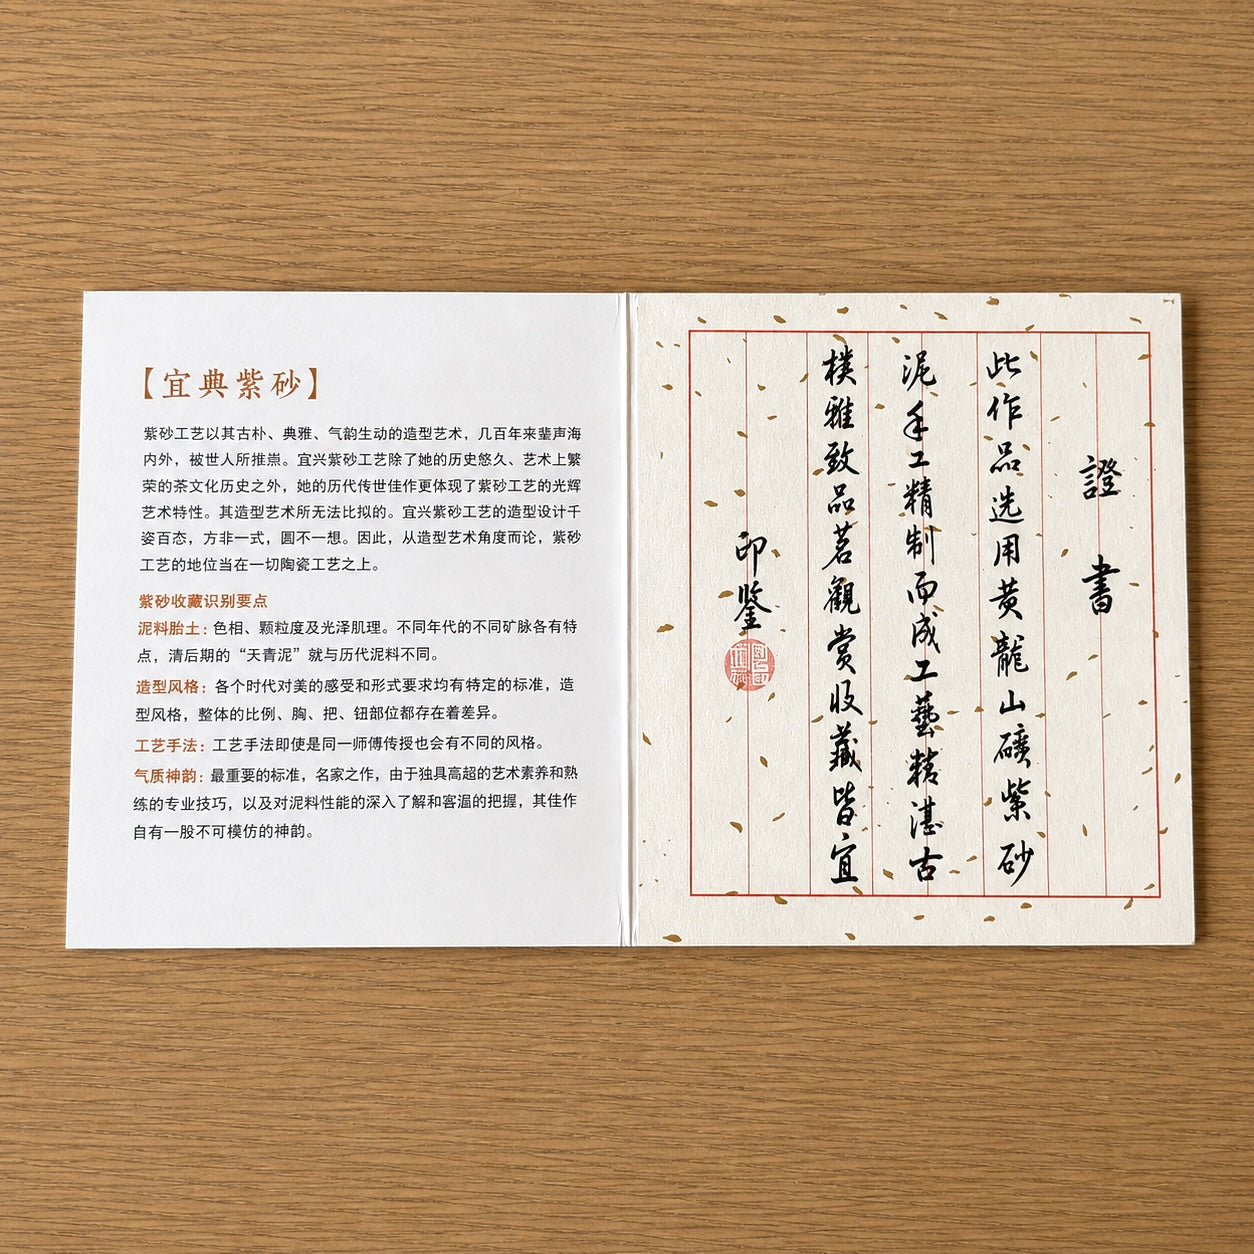 【宜典紫砂】
紫砂工艺以其古朴、典雅、气韵生动的造型艺术，几百年来蜚声海
内外，被世人所推崇。宜兴紫砂工艺除了她的历史悠久、艺术上繁
荣的茶文化历史之外，她的历代传世佳作更体现了紫砂工艺的光辉
艺术特性。其造型艺术所无法比拟的。宜兴紫砂工艺的造型设计千
姿百态，方非一式，圆不一想。因此，从造型艺术角度而论，紫砂
工艺的地位当在一切陶瓷工艺之上。
紫砂收藏识别要点
泥料胎土：色相、颗粒度及光泽肌理。不同年代的不同矿脉各有特
点，清后期的“天青泥”就与历代泥料不同。
造型风格：各个时代对美的感受和形式要求均有特定的标准，造
型风格，整体的比例、胸、把、钮部位都存在着差异。
工艺手法：工艺手法即使是同一师傅传授也会有不同的风格。
气质神韵：最重要的标准，名家之作，由于独具高超的艺术素养和熟
练的专业技巧，以及对泥料性能的深入了解和窖温的把握，其佳作
自有一股不可模仿的神韵。
證書
此作品选用黄龍山礦紫砂
泥手工精制而成工藝精湛古
樸雅致品茗觀賞收藏皆宜
印鑒